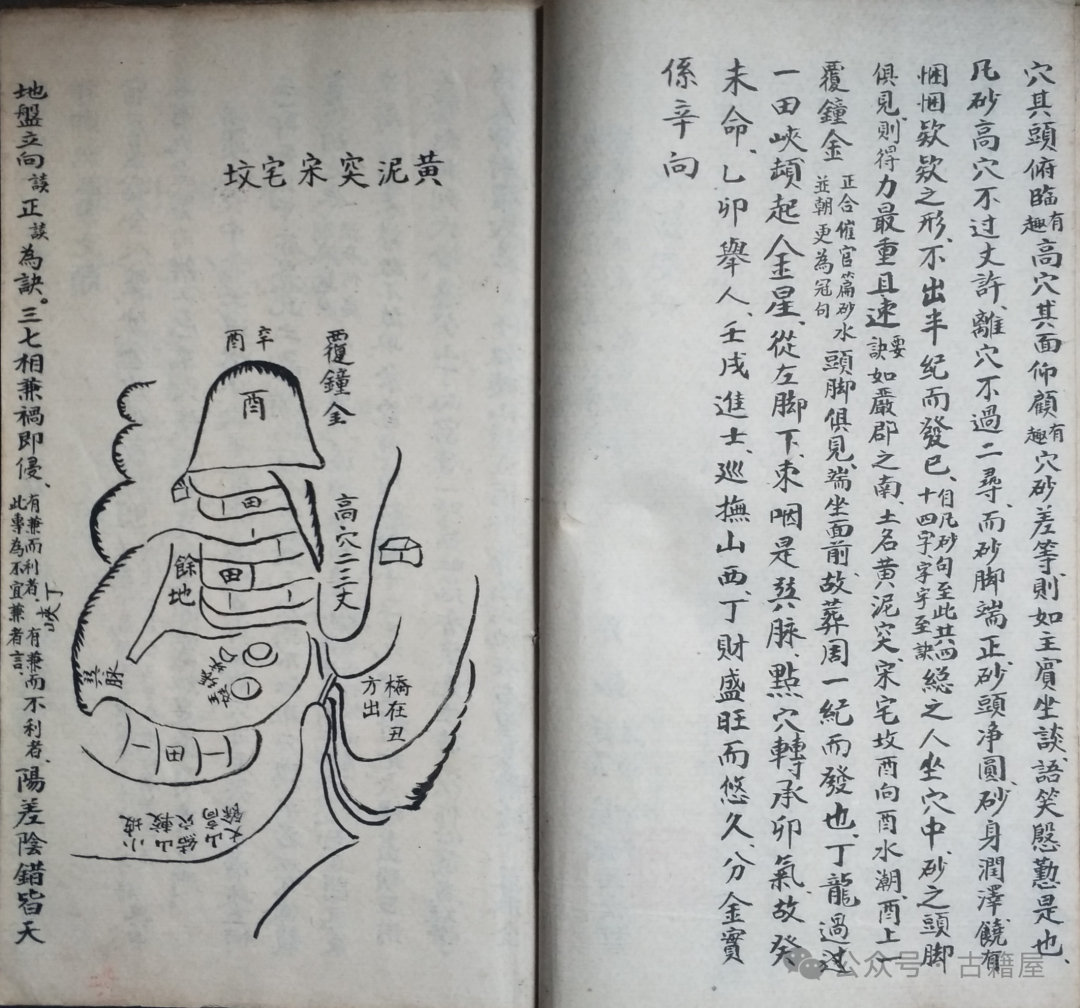 穴其頭俯臨有趣高穴其面仰顧有趣穴砂差等則如主賓坐談語笑慇懃是也、
凡砂高穴不过丈許、離穴不過二尋、而砂脚端正、砂頭净圓、砂身潤澤、饒有
悃悃欵欵之形、不出半紀而發已、自凡砂句至此共四十四字字字至訣總之人坐穴中、砂之頭脚
俱見、則得力最重且速要訣如嚴郡之南、土名黄泥突、宋宅坟酉向酉水潮、酉上一
覆鐘金正合催官篇砂水並朝更為冠句頭脚俱見、端坐面前、故葬周一紀而發也、丁龍過过
一田峽、頓起人金星、從左脚下、束咽是巽脉、點穴轉承卯氣、故癸
未命、乙卯舉人、壬戌進士、巡撫山西、丁財盛旺而悠久、分金實
係辛向
黄泥突宋宅坟
覆鐘金
辛
酉
酉
田
田
高穴二三丈
餘地
巽脉
丁峽
橋在丑方出
田
小坡
地盤立向談正談為訣。三七相兼禍即侵、有兼而利者、有兼而不利者、此專為不宜兼者言、陽差陰錯皆天
公众号·古籍屋